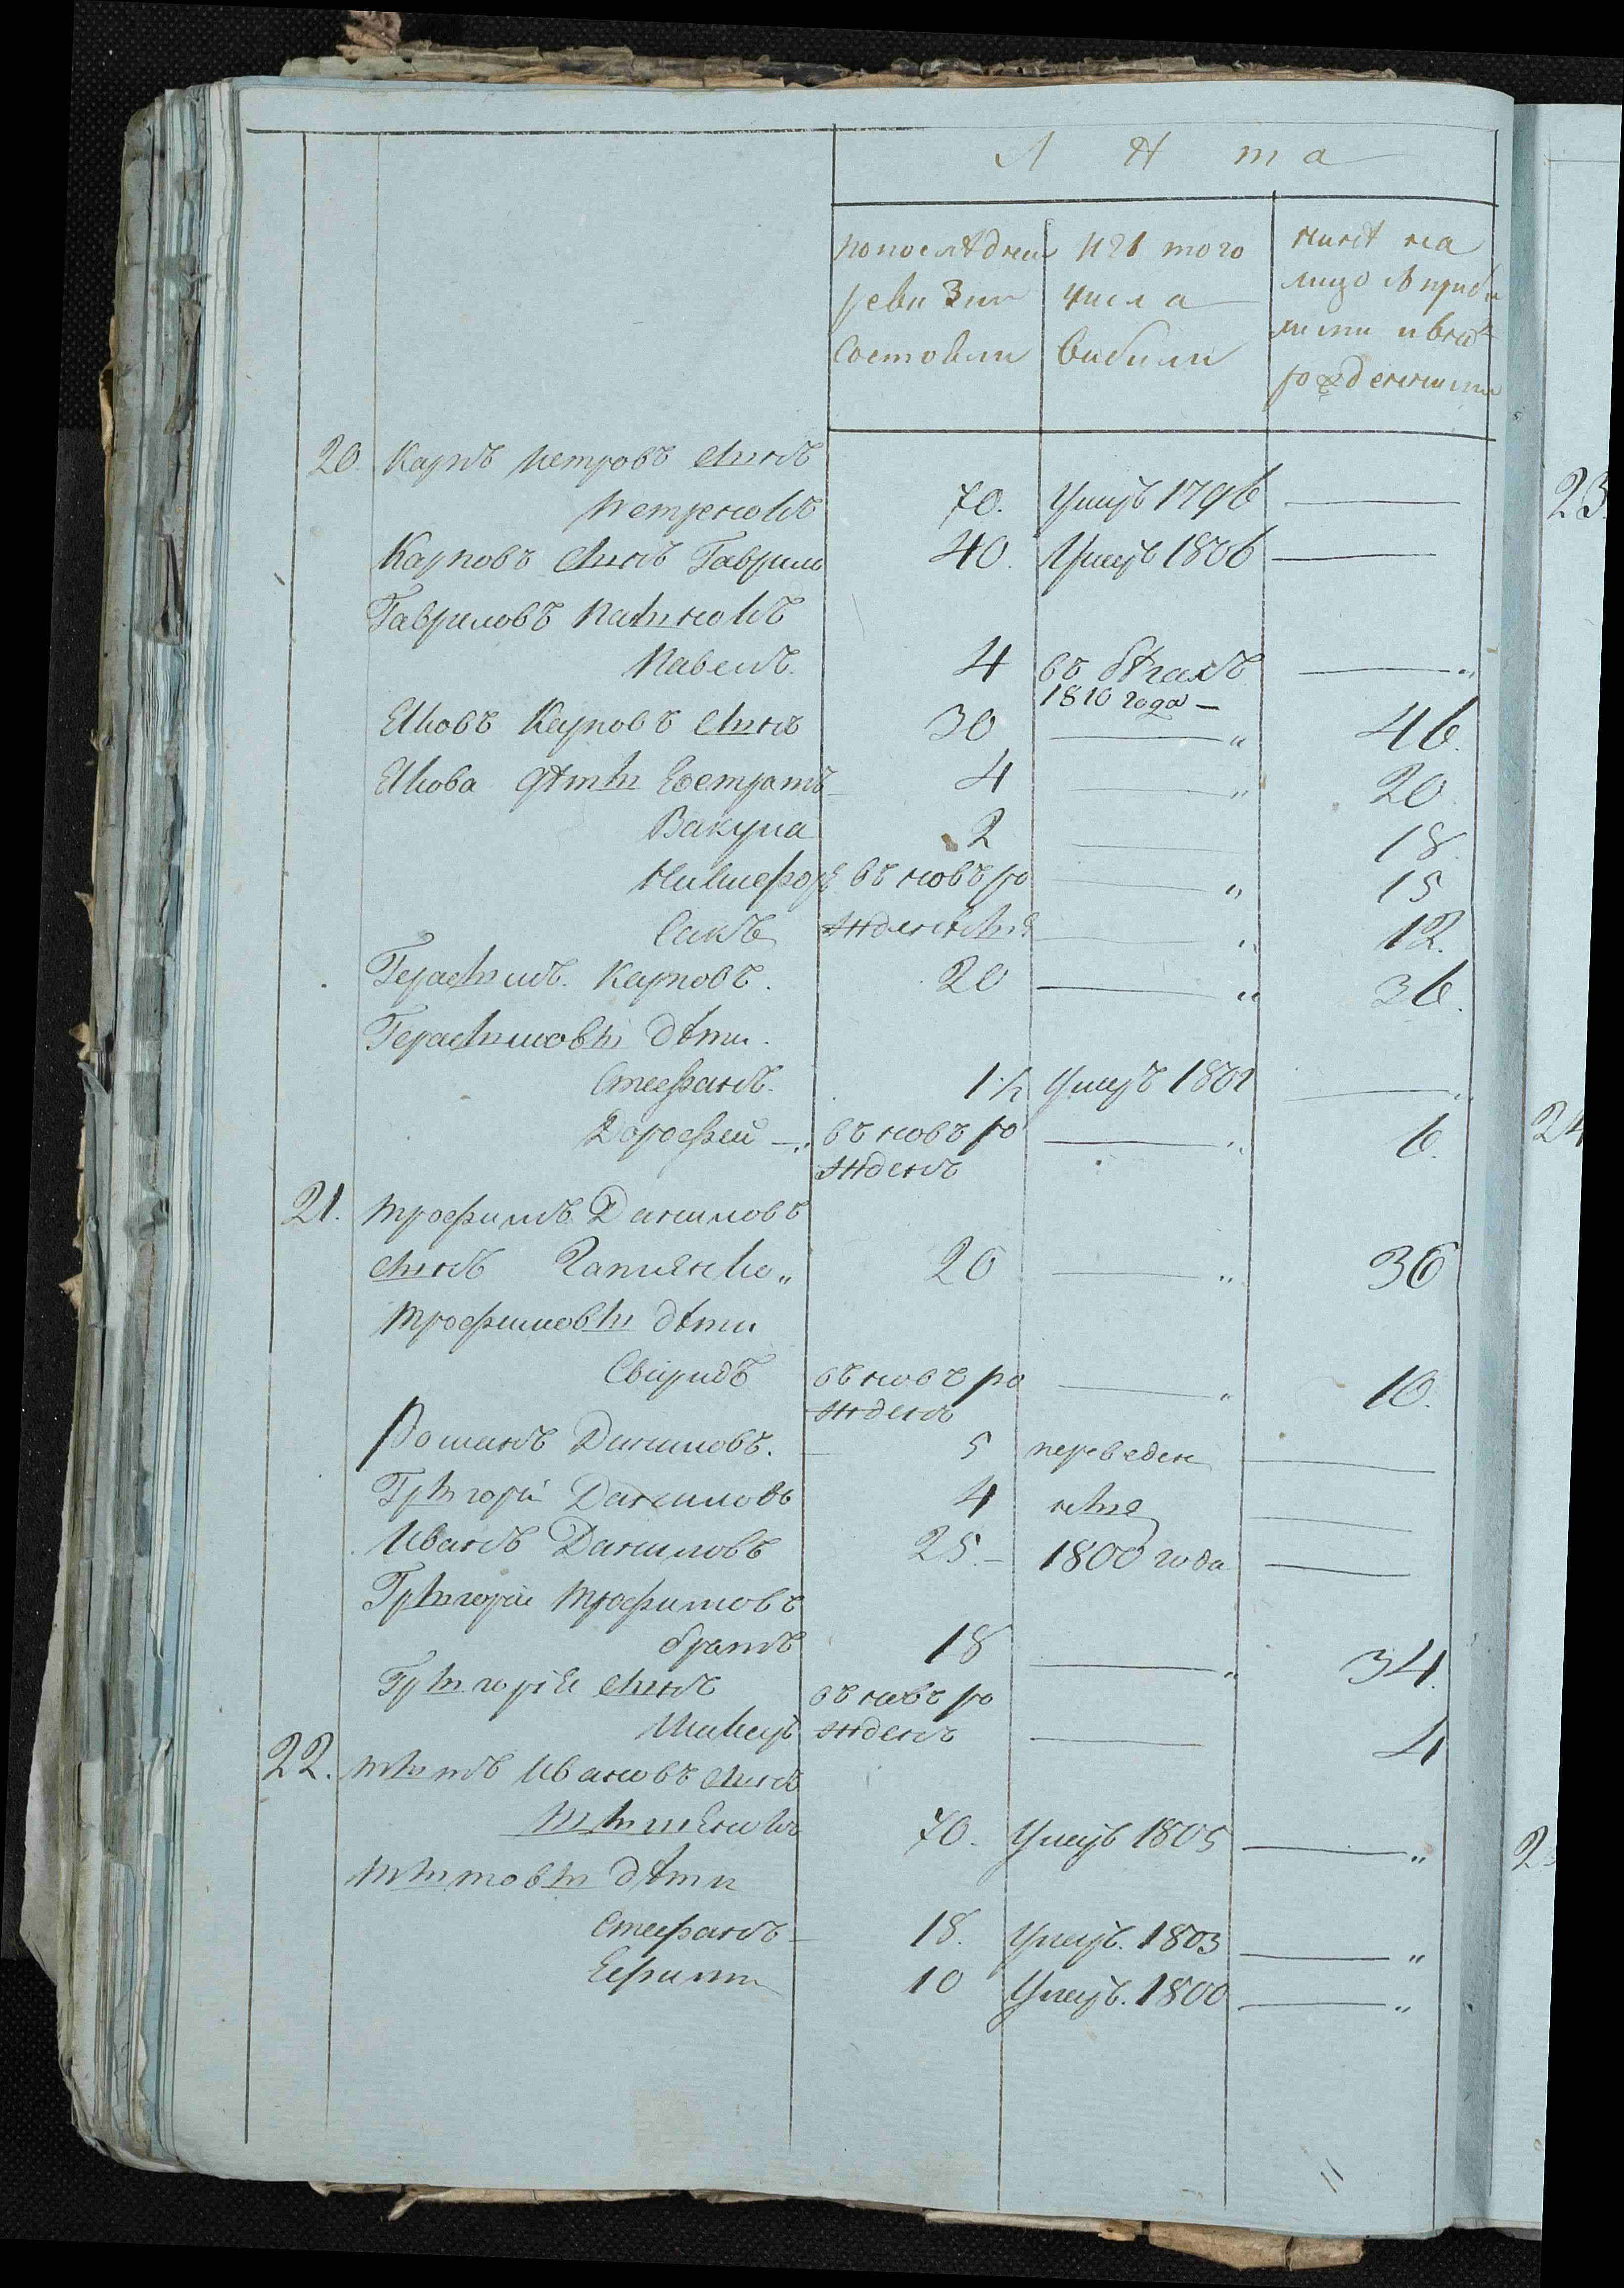 Л ѣ т а
попоследней
ревизии
состояли
изъ того
числа
выбыли
ныне на
лицо съ прибы
лыми и вно
рожденными
20. Карпъ Петровъ сынъ
Петренокъ 70. Умеръ 1796
Карповъ сынъ Гаврило 40. Умеръ 1806
Гавриловъ пасынокъ
Павелъ. 4 въ бѣгахъ
1810 года
Яковъ Карповъ сынъ 30 46.
Якова дѣты Евстратъ 4 20.
Вакула 2 18.
Никифоръ въ новъ ро 15
Сакъ жденныя 12.
Герасымъ Карповъ. 20 36.
Герасымовы дѣти.
Стефанъ. 1½ Умеръ 1801
Дорофей въ новъ ро 6.
жденъ
21. Трофимъ Даниловъ
сынъ 20 36
Трофимовы дѣти
Свиридъ въ новъ ро 10.
жденъ
Романъ Даниловъ. 5 переведен
Грыгорій Даниловъ 4 ныя
Иванъ Даниловъ 25. 1800 года
Грыгорій Трофимовъ
братъ 18 34.
Грыгорія сынъ въ новъ ро
жденъ 4
22. Тытъ Ивановъ сынъ
70. Умеръ 1805
Тытовы дѣти
Стефанъ 18. Умеръ. 1803
Ефимъ 10 Умеръ. 1800
23.
24
2
11